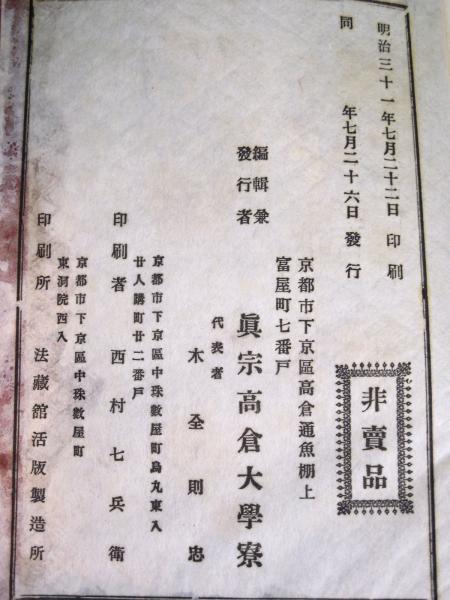 明治三十一年七月二十二日印刷
同　　　年七月二十六日發行
非賣品
編輯兼
發行者
京都市下京區高倉通魚棚上
富屋町七番戸
眞宗高倉大學寮
代表者
木全則忠
京都市下京區中珠數屋町烏丸東入
廿人講町廿二番戸
印刷者　西村七兵衛
京都市下京區中珠數屋町
東洞院西入
印刷所　法藏館活版製造所